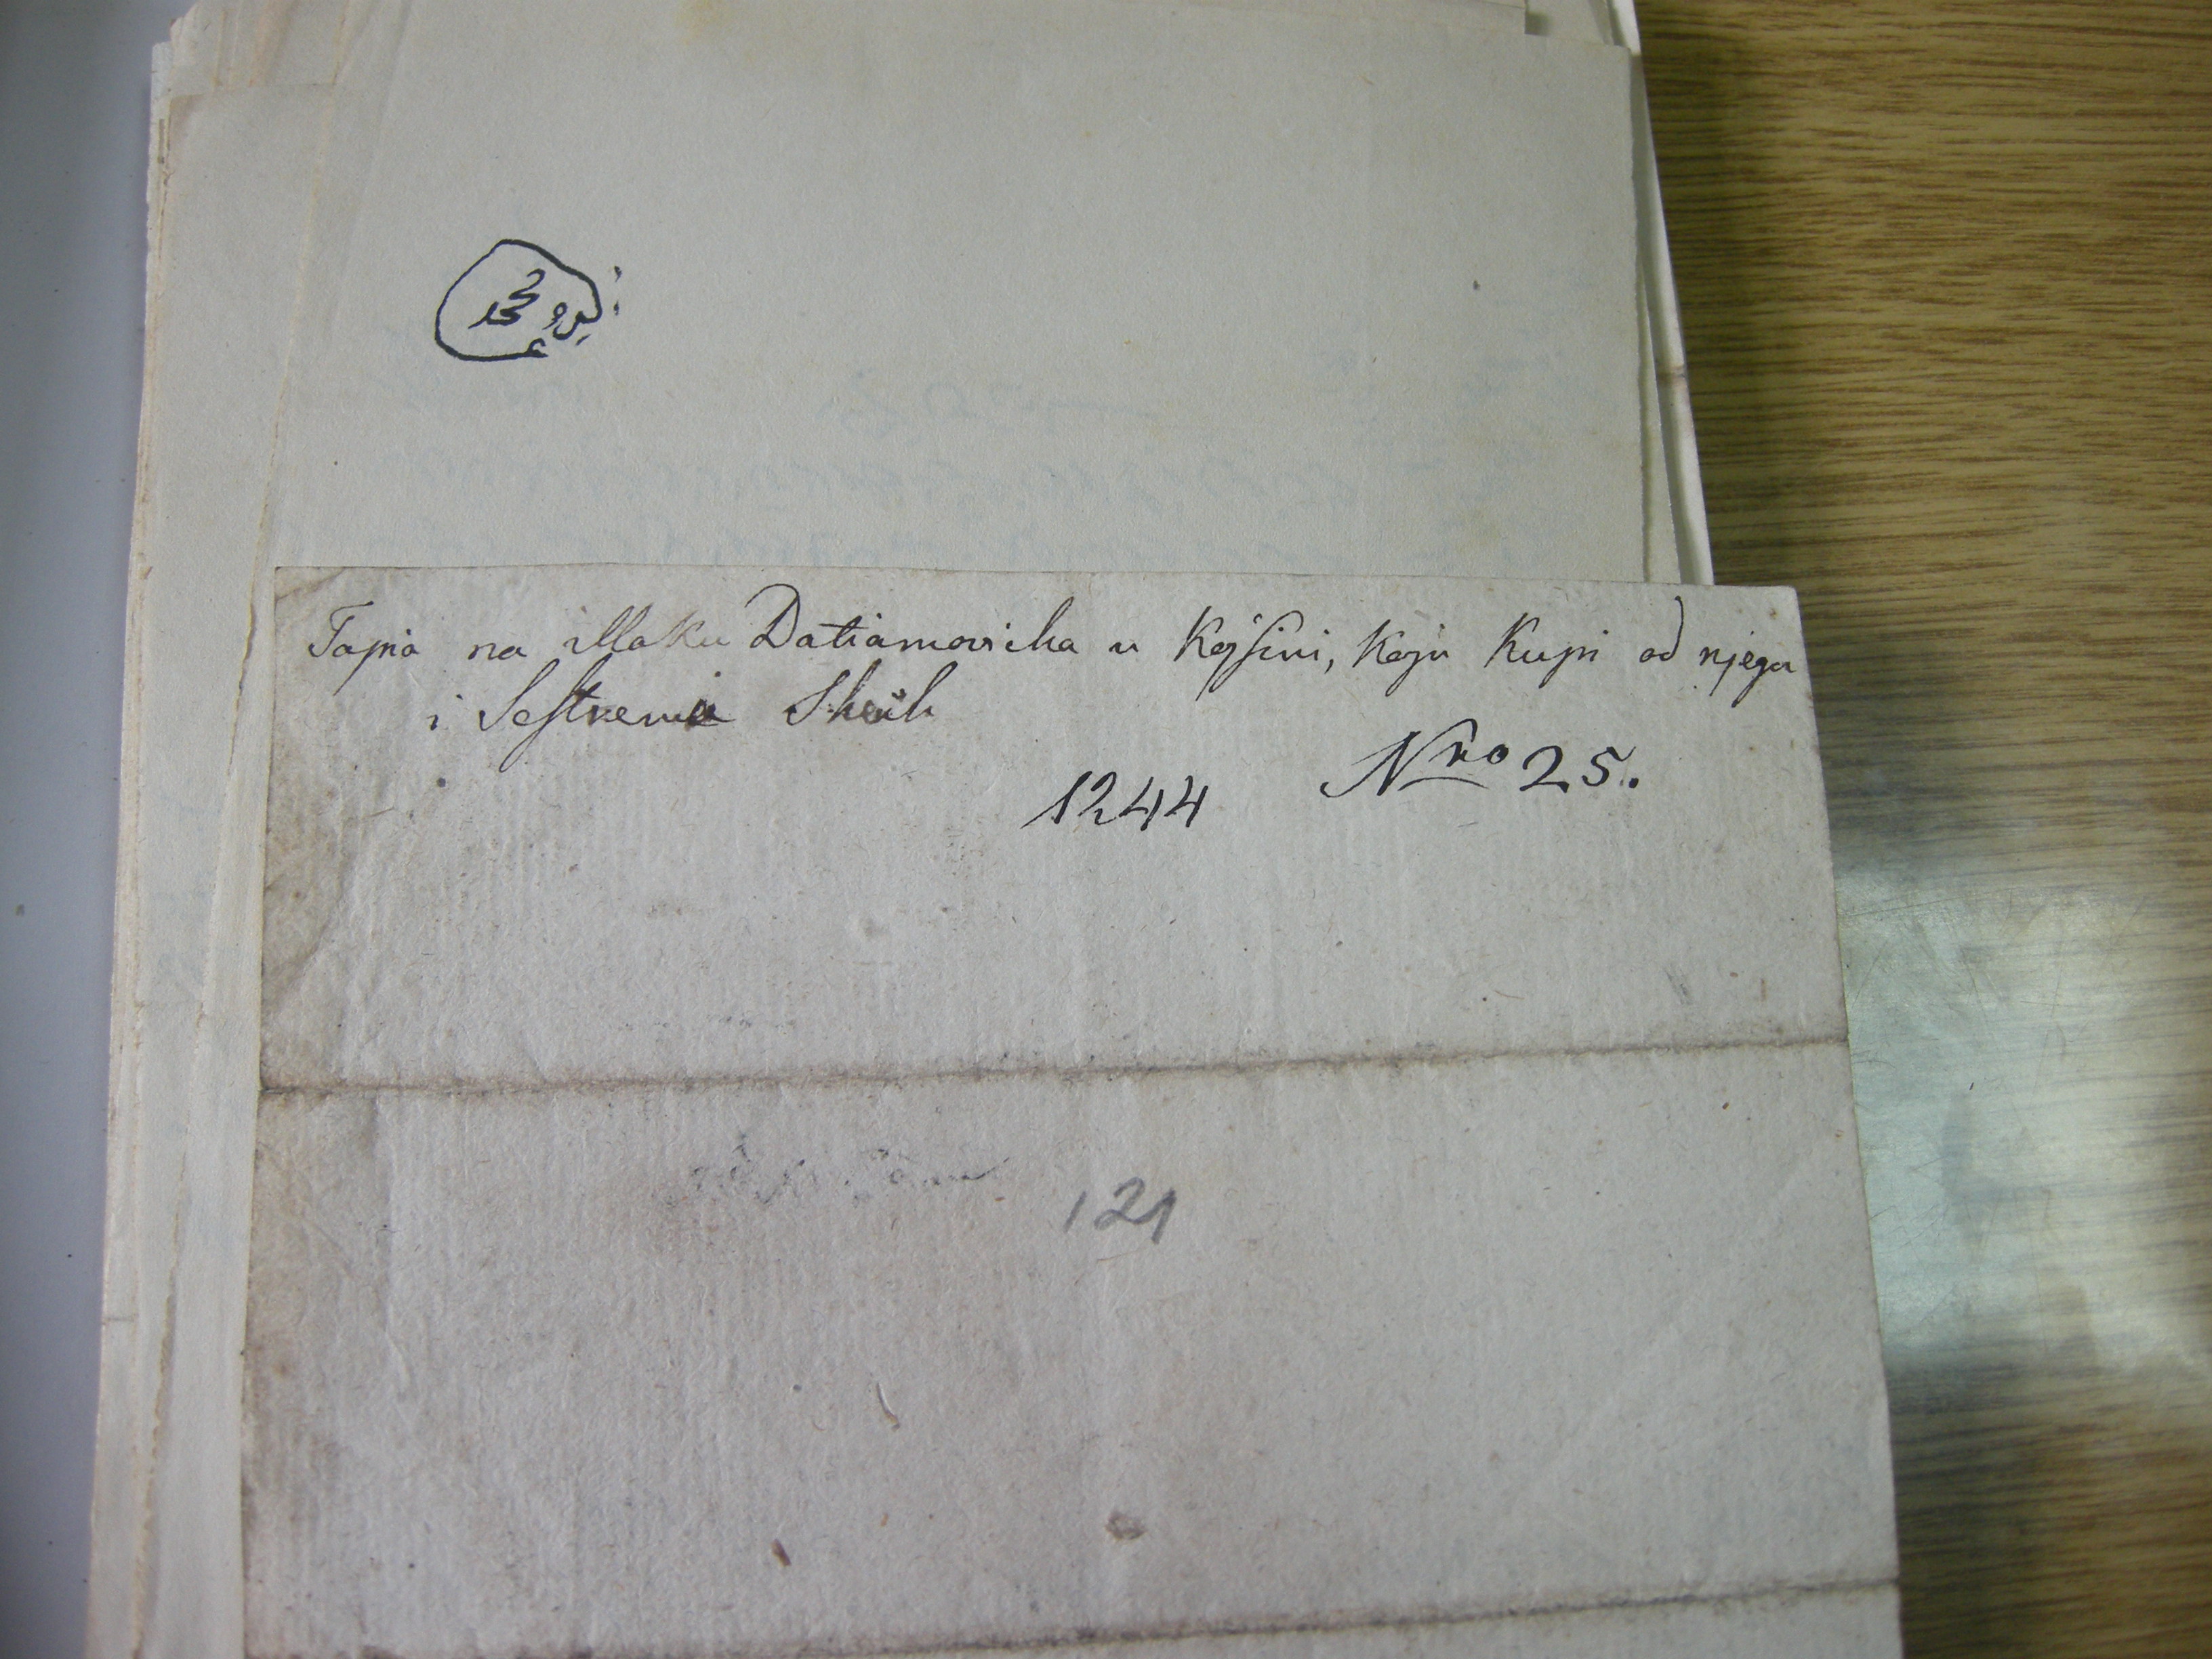 محمد
Tapia na Mlaku Datiamovicha u Kojsini, koju kupi od njega
i Sestrenia
1244 Nro 25.
121